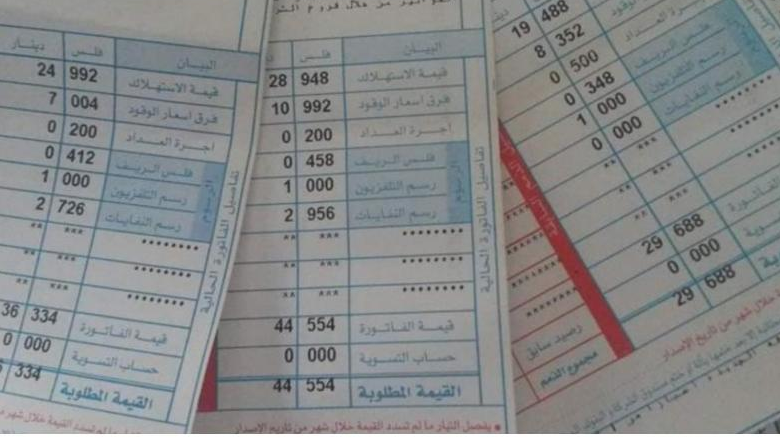 البيان فلس دينار
قيمة الاستهلاك 992 24
فرق اسعار الوقود 004 7
اجرة العداد 200 0
فلس الريف 412 0
رسم التلفزيون 000 1
رسم النفايات 726 2
الرسوم
تفاصيل الفاتورة الحالية
******** *** **
******** *** **
******** *** **
قيمة الفاتورة 334 36
حساب التسوية 000 0
القيمة المطلوبة 334
يفصل التيار ما لم تسدد القيمة خلال شهر
البيان فلس
قيمة الاستهلاك 948 28
فرق اسعار الوقود 992 10
اجرة العداد 200 0
فلس الريف 458 0
رسم التلفزيون 000 1
رسم النفايات 956 2
الرسوم
تفاصيل الفاتورة الحالية
******** *** **
******** *** **
******** *** **
قيمة الفاتورة 554 44
حساب التسوية 000 0
القيمة المطلوبة 554 44
يفصل التيار ما لم تسدد القيمة خلال شهر من تاريخ الاصدار
488 19
الوقود 352 8
العداد 500 0
فلس الريف 348 0
رسم التلفزيون 000 1
رسم النفايات 000 0
******** *** **
******** *** **
688 29
000 0
688 29
رصيد سابق
مجموع الذمم
خلال شهر من تاريخ الإصدار